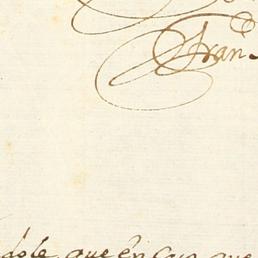 Fran
dole que en caso que